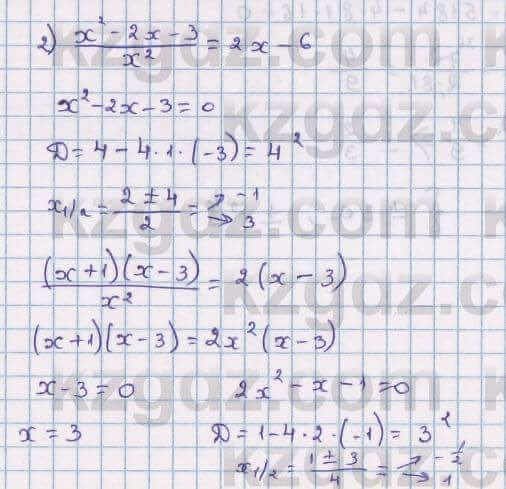 2) (x² - 2x - 3)/x² = 2x - 6
x² - 2x - 3 = 0
D = 4 - 4·1·(-3) = 4²
x1/2 = (2 ± 4)/2 = ↗ -1 → 3
((x+1)(x-3))/x² = 2(x-3)
(x+1)(x-3) = 2x²(x-3)
x - 3 = 0    2x² - x - 1 = 0
x = 3    D = 1 - 4·2·(-1) = 3²
x1/2 = (1 ± 3)/4 = ↗ -1/2 → 1
kzgdz.com